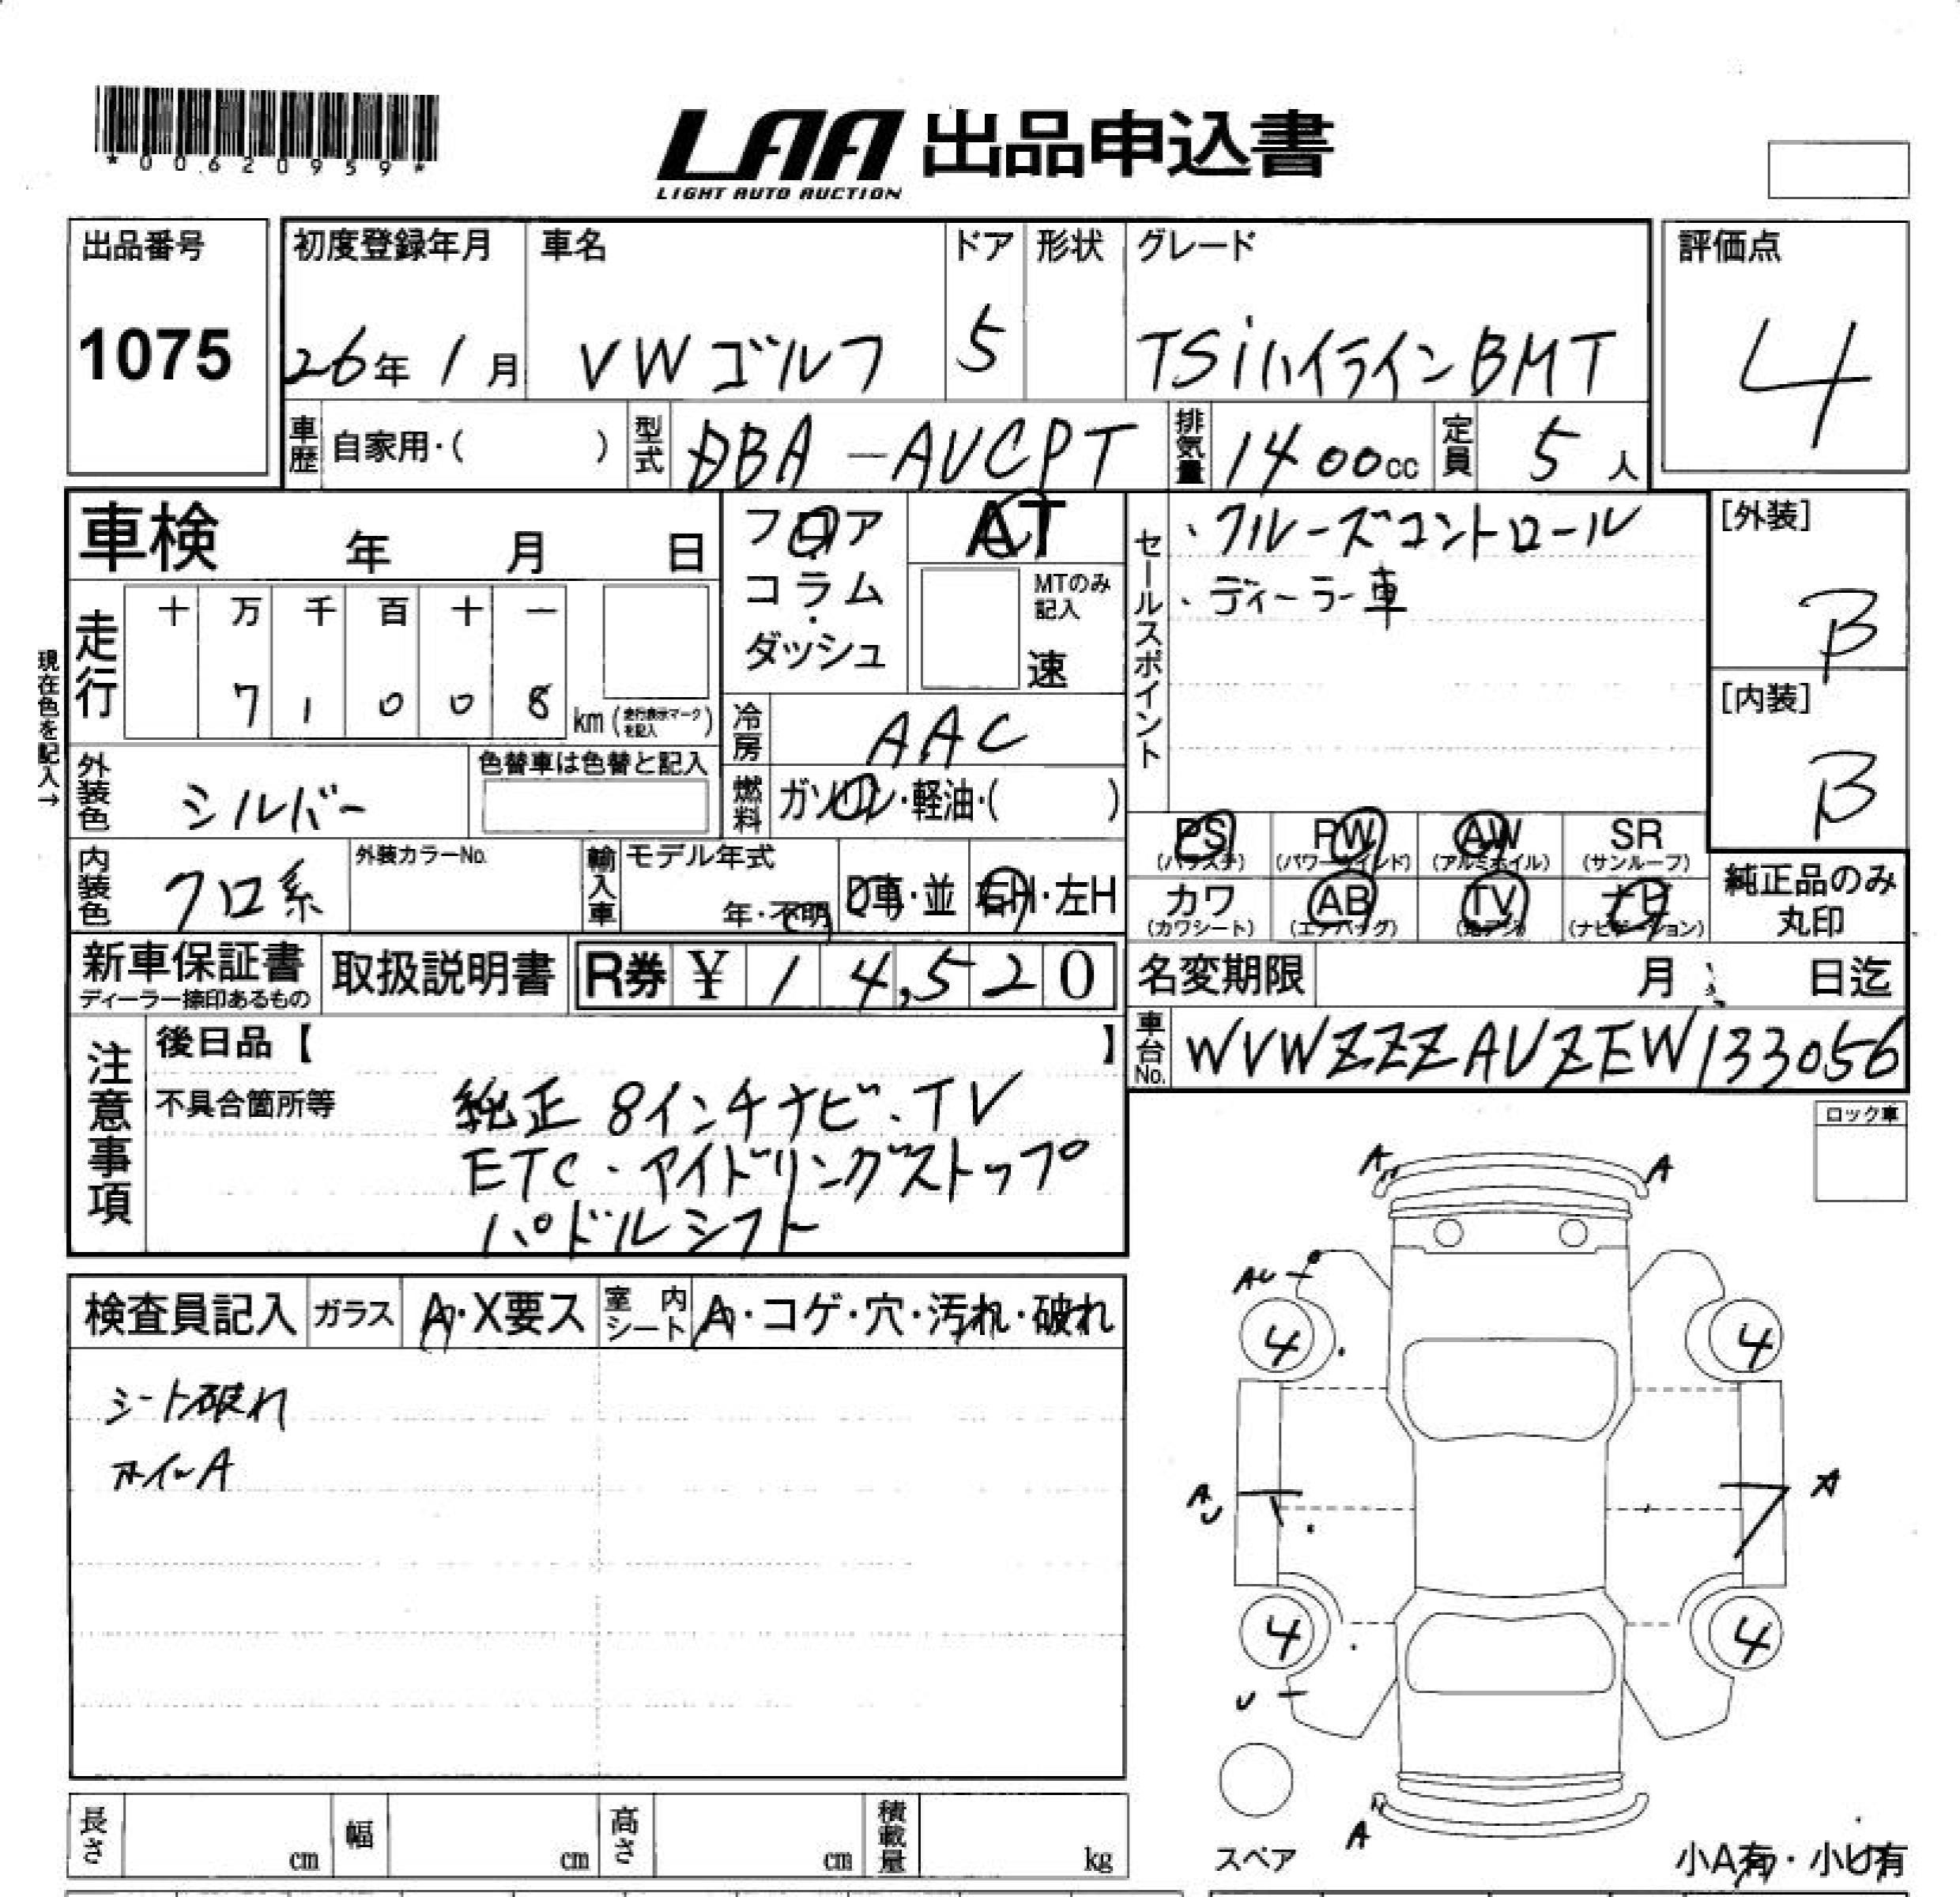 *00620959*
LAA 出品申込書
LIGHT AUTO AUCTION
出品番号
1075
初度登録年月
26年 1月
車名
VW ゴルフ
ドア
5
形状
グレード
TSiハイラインBMT
評価点
4
車歴 自家用・( )
型式 DBA-AUCPT
排気量 1400cc
定員 5人
車検 年 月 日
フロア
コラム・
ダッシュ
AT
MTのみ記入
速
セールスポイント
・クルーズコントロール
・ディーラー車
[外装]
B
[内装]
B
現在色を記入→
走行
十 万 千 百 十 一
7 1 0 0 8 km (走行表示マークを記入)
冷房 AAC
外装色 シルバー
色替車は色替と記入
燃料 ガソリン・軽油・( )
内装色 クロ系
外装カラーNo.
輸入車
モデル年式
年・不明
D車・並 右H・左H
PS (パワステ)
PW (パワーウインド)
AW (アルミホイル)
SR (サンルーフ)
カワ (カワシート)
AB (エアバッグ)
TV (地デジ)
ナビ (ナビゲーション)
純正品のみ
丸印
新車保証書
ディーラー捺印あるもの
取扱説明書
R券 ¥ 14,520
名変期限 月 日迄
車台No. WVWZZZAUZEW133056
注意事項
後日品【 】
不具合箇所等
純正 8インチナビ・TV
ETC・アイドリングストップ
パドルシフト
ロック車
検査員記入
ガラス A・X要ス
室内シート A・コゲ・穴・汚れ・破れ
シート破れ
ホイルA
A A
AU
4 4
A U A
4 4
U
A
スペア
小A有・小U有
長さ cm
幅 cm
高さ cm
積載量 kg